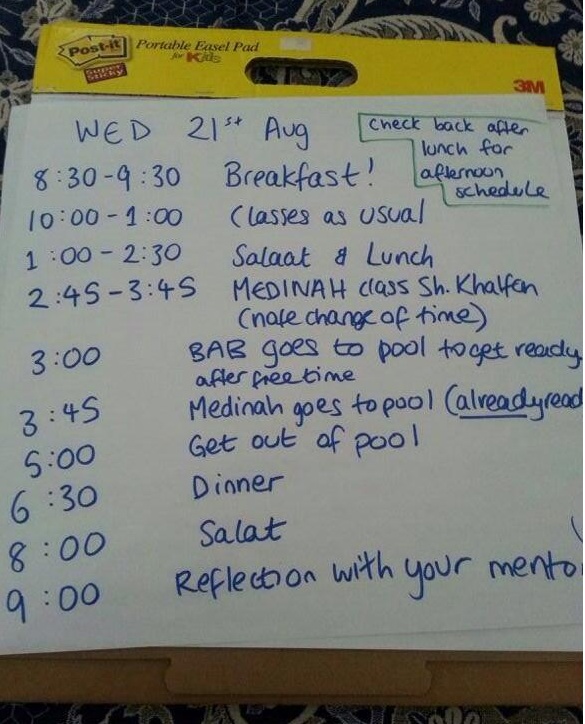 Post-it
Super
Sticky
Portable Easel Pad
for Kids
3M
WED 21st Aug
Check back after
lunch for
afternoon
schedule
8:30-9:30 Breakfast!
10:00-1:00 Classes as usual
1:00-2:30 Salaat & Lunch
2:45-3:45 MEDINAH class Sh. Khalfan
(note change of time)
3:00 BAB goes to pool to get ready
after free time
3:45 Medinah goes to pool (already read
5:00 Get out of pool
6:30 Dinner
8:00 Salat
9:00 Reflection with your mento